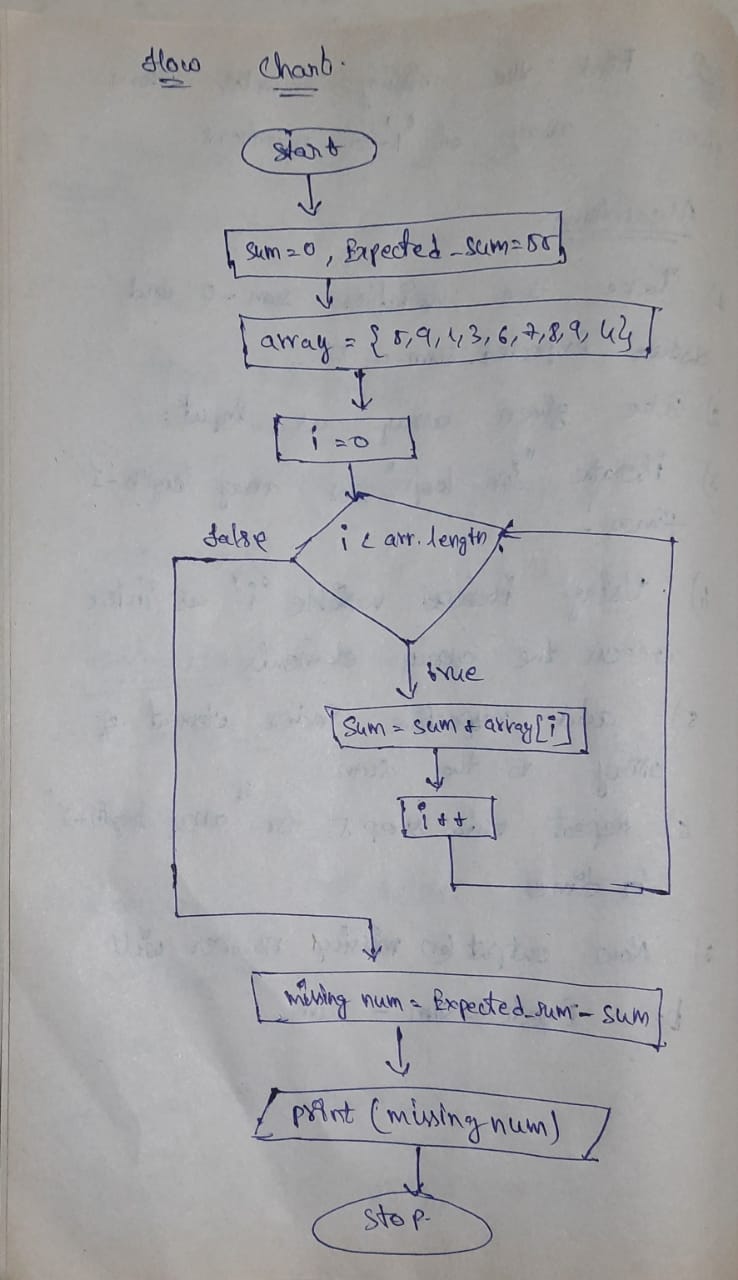 Flow Chart.
start
sum=0, Expected_sum=55
array = {5,9,1,3,6,7,8,9,4}
i=0
i < arr.length
false
true
Sum = sum + array[i]
i++
missing num = Expected_sum - sum
print (missing num)
stop.